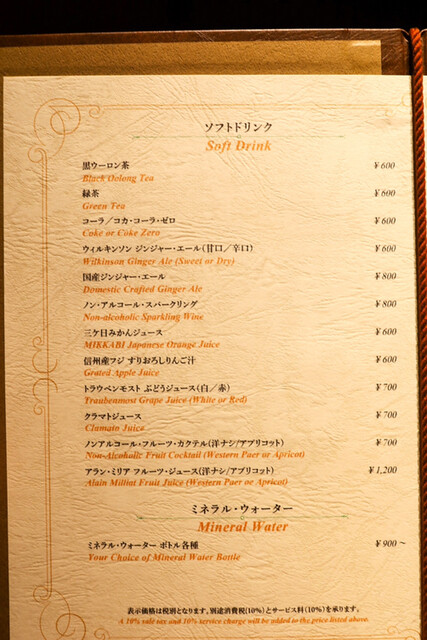 ソフトドリンク
Soft Drink
黒ウーロン茶 ¥600
Black Oolong Tea
緑茶 ¥600
Green Tea
コーラ／コカ・コーラ・ゼロ ¥600
Coke or Coke Zero
ウィルキンソン ジンジャー・エール（甘口／辛口） ¥600
Wilkinson Ginger Ale (Sweet or Dry)
国産ジンジャー・エール ¥800
Domestic Crafted Ginger Ale
ノン・アルコール・スパークリング ¥800
Non-alcoholic Sparkling Wine
三ケ日みかんジュース ¥600
MIKKABI Japanese Orange Juice
信州産フジ すりおろしりんご汁 ¥600
Grated Apple Juice
トラウベンモスト ぶどうジュース（白／赤） ¥700
Traubenmost Grape Juice (White or Red)
クラマトジュース ¥700
Clamato Juice
ノンアルコール・フルーツ・カクテル（洋ナシ/アプリコット） ¥700
Non-Alcoholic Fruit Cocktail (Western Paer or Apricot)
アラン・ミリア フルーツ・ジュース（洋ナシ/アプリコット） ¥1,200
Alain Milliat Fruit Juice (Western Paer or Apricot)
ミネラル・ウォーター
Mineral Water
ミネラル・ウォーター ボトル各種 ¥900～
Your Choice of Mineral Water Bottle
表示価格は税別となります。別途消費税（10%）とサービス料（10%）を承ります。
A 10% sale tax and 10% service charge will be added to the price listed above.